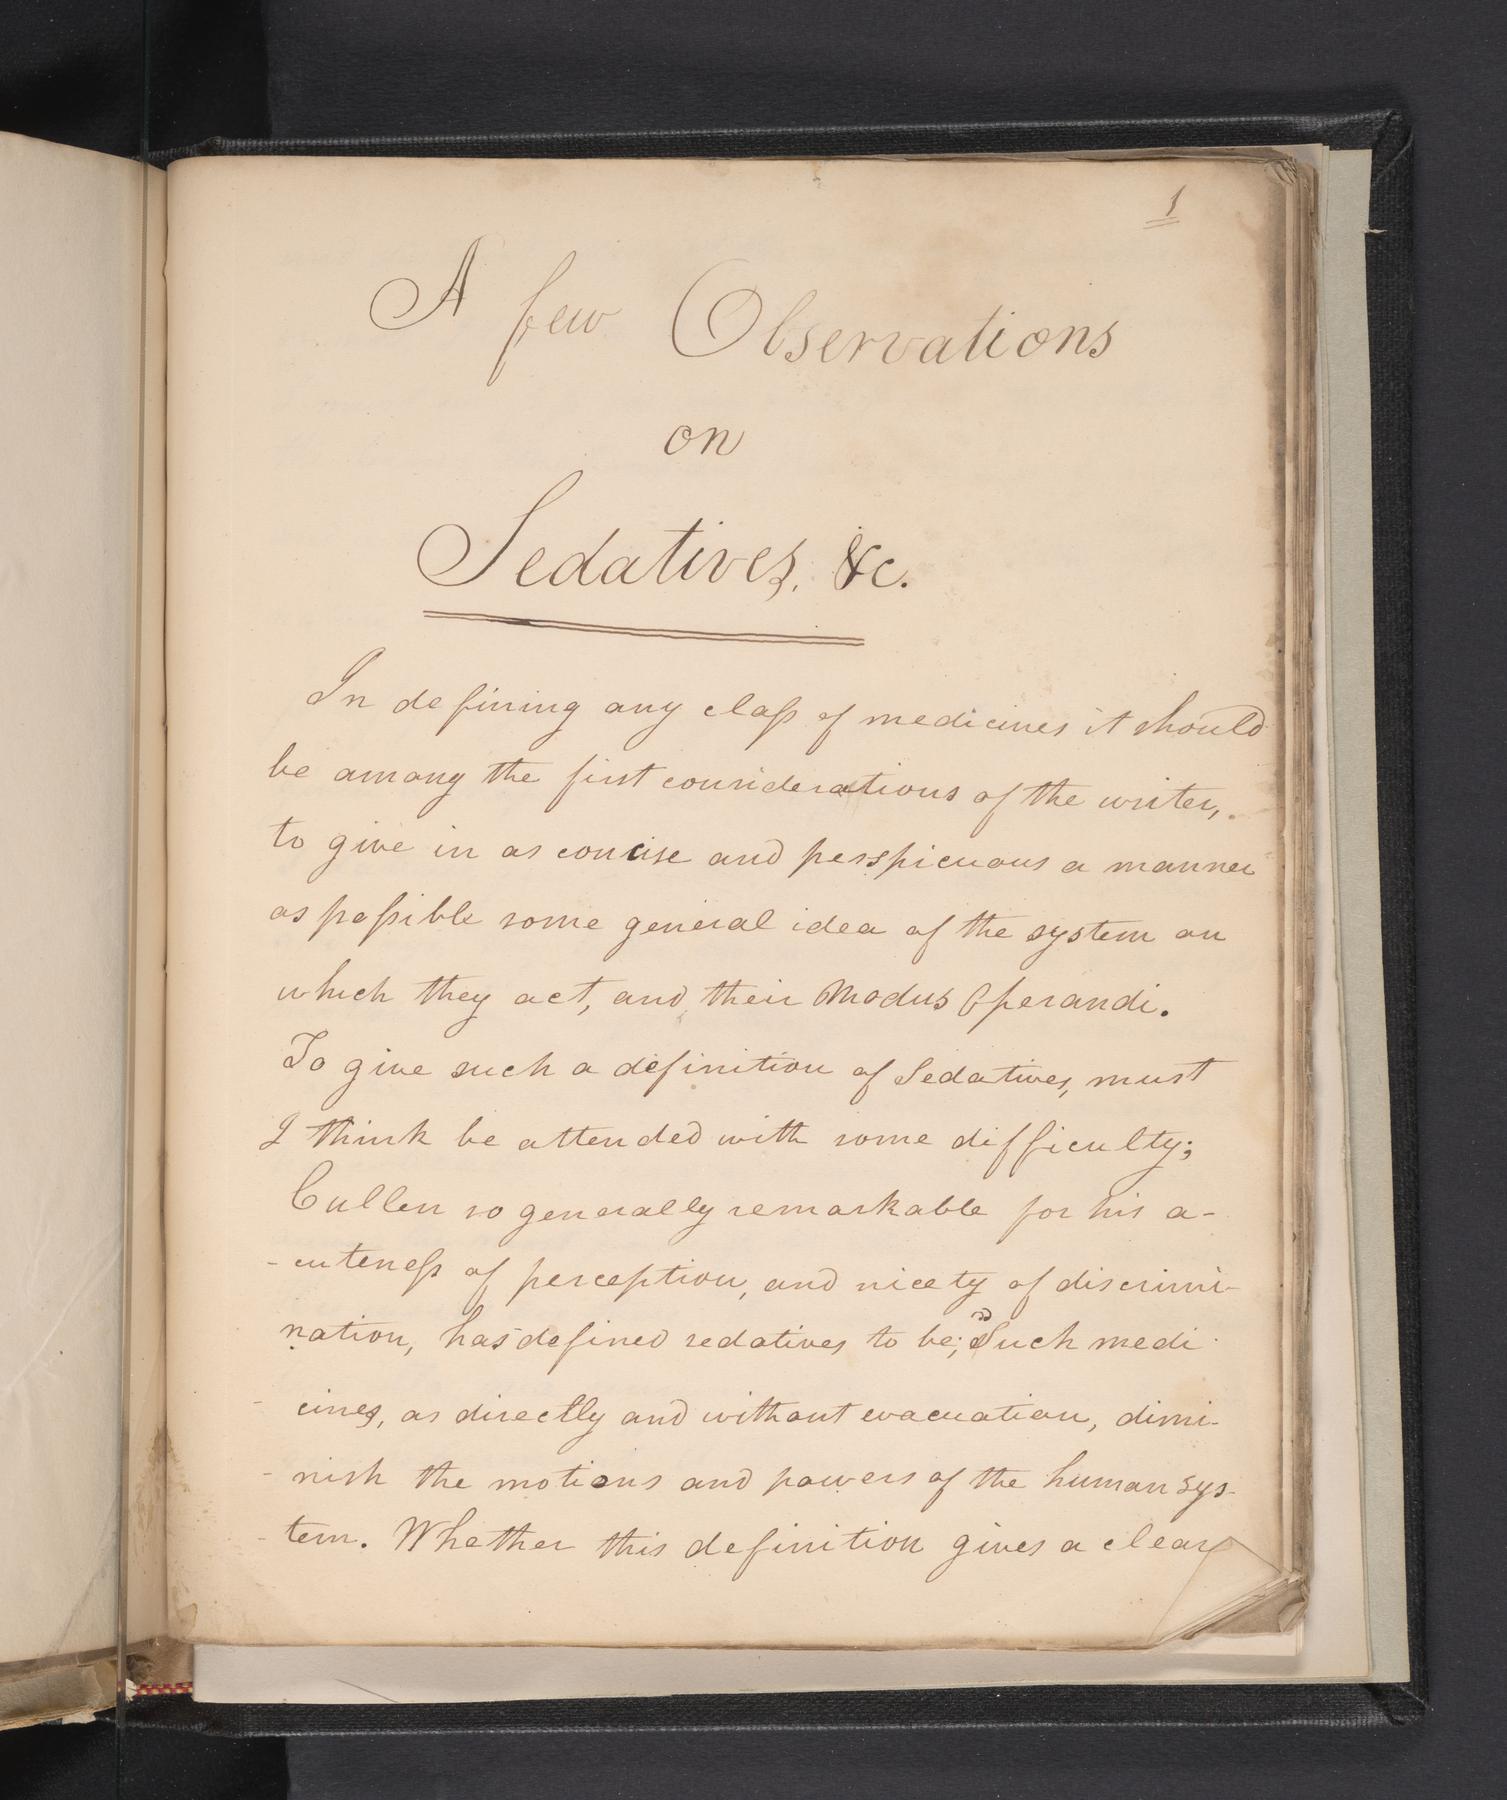 1
A few Observations
on
Sedatives, &c.
In defining any class of medicines it should
be among the first considerations of the writer,
to give in as concise and persspicuous a manner
as possible some general idea of the system on
which they act, and their Modus Operandi.
To give such a definition of Sedatives, must
I think be attended with some difficulty;
Cullen so generally remarkable for his a-
-cuteness of perception, and nicety of discrimi-
nation, has defined sedatives to be; Such medi
-cines, as directly and without evacuation, dimi-
-nish the motions and powers of the human sys-
-tem. Whether this definition gives a clear